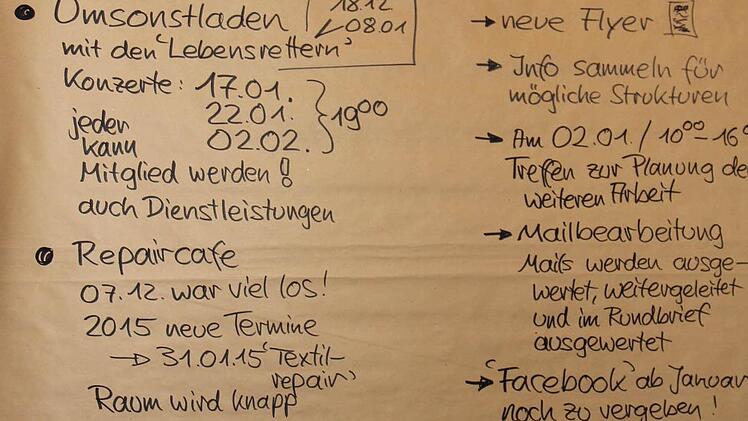 • Umsonstladen
18.12
✓08.01
mit den 'Lebensrettern'
Konzerte: 17.01.
22.01. } 19⁰⁰
jeder
kann 02.02.
Mitglied werden !
auch Dienstleistungen
• Repaircafe
07.12. war viel los!
2015 neue Termine
→ 31.01.15 'Textil-
repair'
Raum wird knapp
→ neue Flyer
→ Info sammeln für
mögliche Strukturen
→ Am 02.01. / 10⁰⁰-16⁰
Treffen zur Planung de
weiteren Arbeit
→ Mailbearbeitung
Mails werden ausge-
wertet, weitergeleitet
und im Rundbrief
ausgewertet
→ 'Facebook' ab Januar
noch zu vergeben !